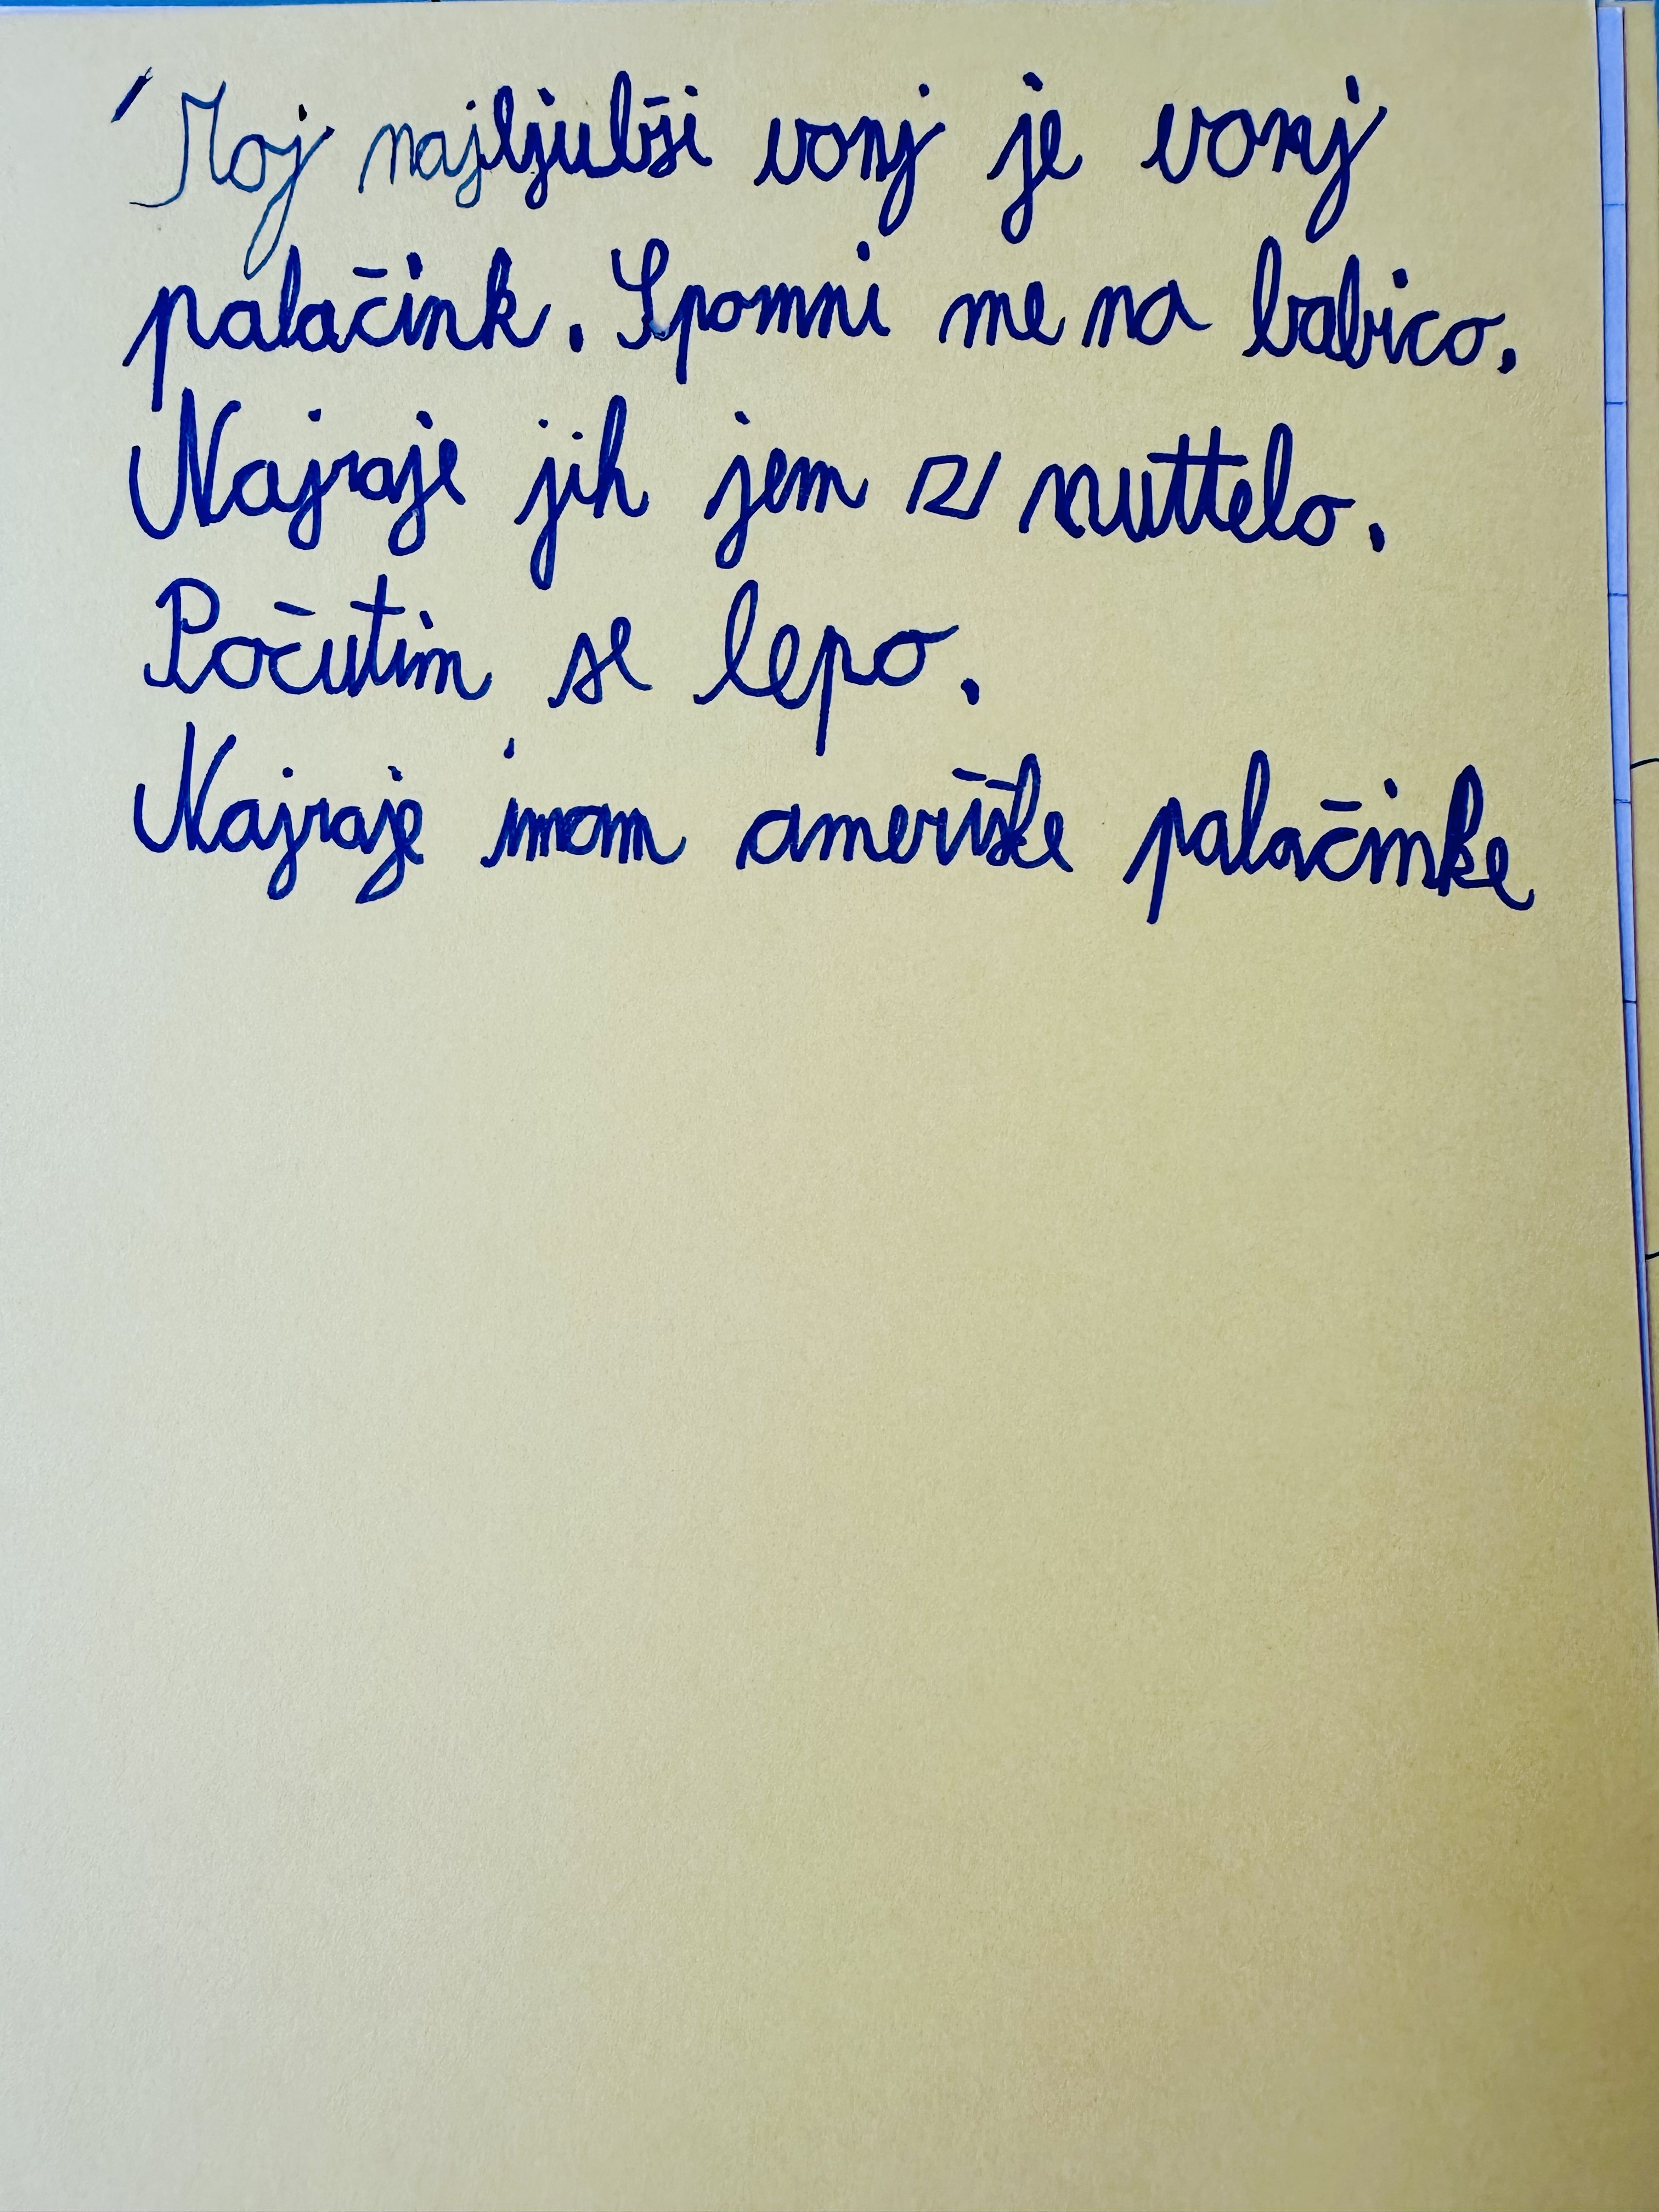 Moj najljubši vonj je vonj
palačink. Spomni me na babico.
Najraje jih jem z nuttelo.
Počutim se lepo.
Najraje imam ameriške palačinke